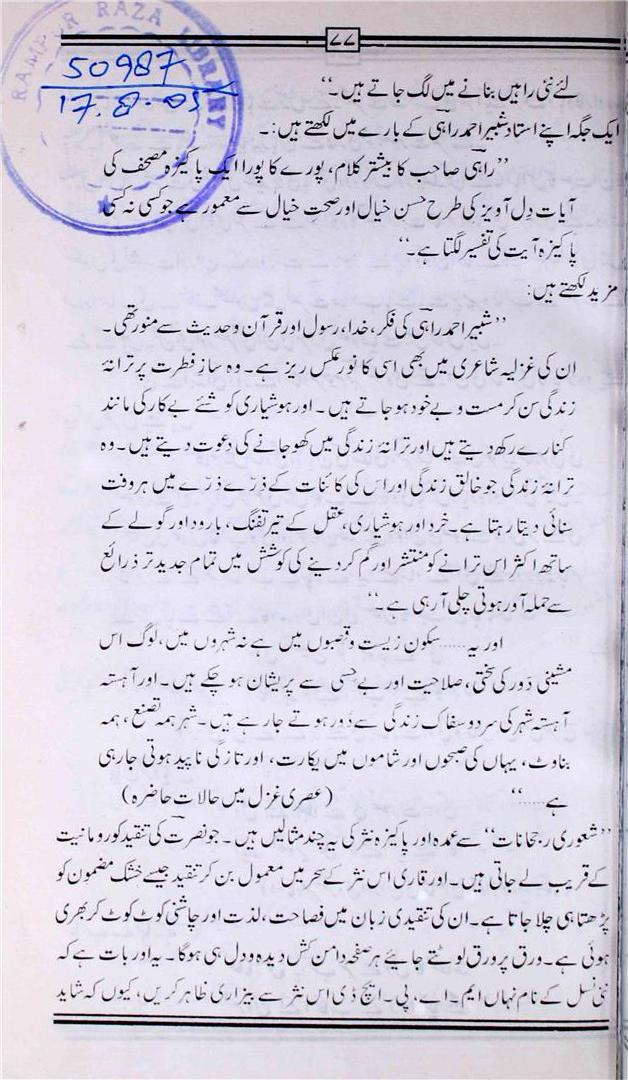 ۷۷
RAMPUR RAZA LIBRARY
50987
17.8.05
لئے نئی راہیں بنانے میں لگ جاتے ہیں۔‘‘
ایک جگہ اپنے استاد شبیر احمد راہی کے بارے میں لکھتے ہیں:۔
’’راہی صاحب کا بیشتر کلام، پورے کا پورا ایک پاکیزہ مصحف کی
آیات دِل آویز کی طرح حسن خیال اور صحتِ خیال سے معمور ہے جو کسی نہ کسی
پاکیزہ آیت کی تفسیر لگتا ہے۔‘‘
مزید لکھتے ہیں:
’’شبیر احمد راہی کی فکر، خدا، رسول اور قرآن و حدیث سے منور تھی۔
ان کی غزلیہ شاعری میں بھی اسی کا نور عکس ریز ہے۔ وہ سازِ فطرت پر ترانۂ
زندگی سن کر مست و بے خود ہو جاتے ہیں۔ اور ہوشیاری کو شئے بے کار کی مانند
کنارے رکھ دیتے ہیں اور ترانۂ زندگی میں کھو جانے کی دعوت دیتے ہیں۔ وہ
ترانۂ زندگی جو خالق زندگی اور اس کی کائنات کے ذرّے ذرّے میں ہر وقت
سنائی دیتا رہتا ہے۔ خرد اور ہوشیاری، عقل کے تیر تفنگ، بارود اور گولے کے
ساتھ اکثر اس ترانے کو منتشر اور گم کر دینے کی کوشش میں تمام جدید تر ذرائع
سے حملہ آور ہوتی چلی آ رہی ہے۔‘‘
اور یہ...... سکون زیست و قصبوں میں ہے نہ شہروں میں، لوگ اس
مشینی دَور کی سختی، صلاحیت اور بے حسی سے پریشان ہو چکے ہیں۔ اور آہستہ
آہستہ شہر کی سرد و سفاک زندگی سے دُور ہوتے جا رہے ہیں۔ شہر ہمہ تصنع، ہمہ
بناوٹ، یہاں کی صبحوں اور شاموں میں یکارت، اور تازگی ناپید ہوتی جارہی
ہے......‘‘ (عصری غزل میں حالاتِ حاضرہ)
’’شعوری رجحانات‘‘ سے عمدہ اور پاکیزہ نثر کی یہ چند مثالیں ہیں۔ جو نصرت کی تنقید کو رومانیت
کے قریب لے جاتی ہیں۔ اور قاری اس نثر کے سحر میں معمول بن کر تنقید جیسے خشک مضمون کو
پڑھتا ہی چلا جاتا ہے۔ ان کی تنقیدی زبان میں فصاحت، لذت اور چاشنی کوٹ کوٹ کر بھری
ہوئی ہے۔ ورق پر ورق لوٹتے جائے ہر صفحہ دامن کش دیدہ و دل ہی ہوگا۔ یہ اور بات ہے کہ
نئی نسل کے نام نہاں ایم۔ اے، پی۔ ایچ ڈی اس نثر سے بیزاری ظاہر کریں، کیوں کہ شاید